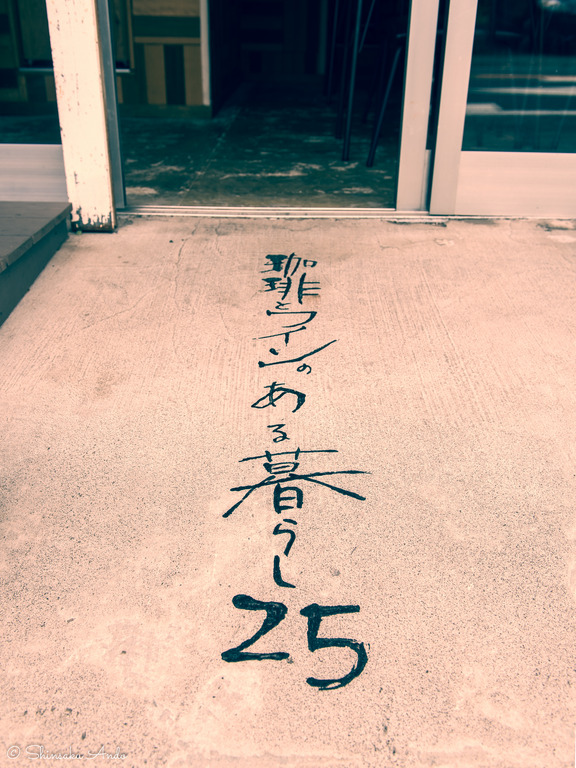 珈琲とワインのある暮らし
25
© Shinsaku Ando